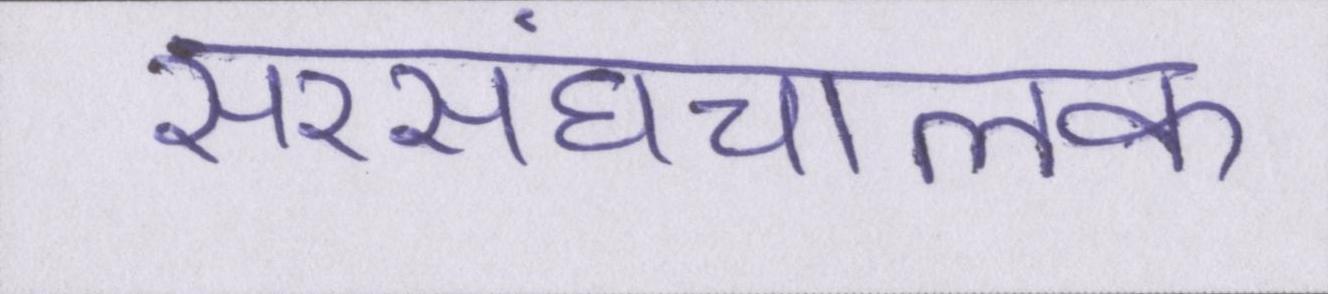 सरसंघचालक